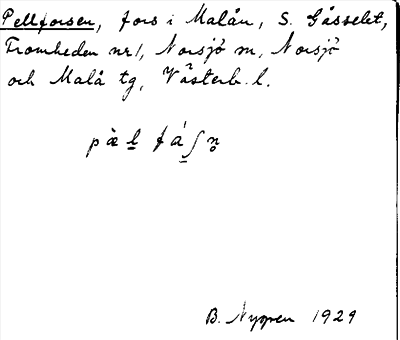 Pellforsen, fors i Malån, S. Gåsselet,
Fromheden nr 1, Norsjö sn, Norsjö
och Malå tg, Västerb. l.
B. Nygren 1929